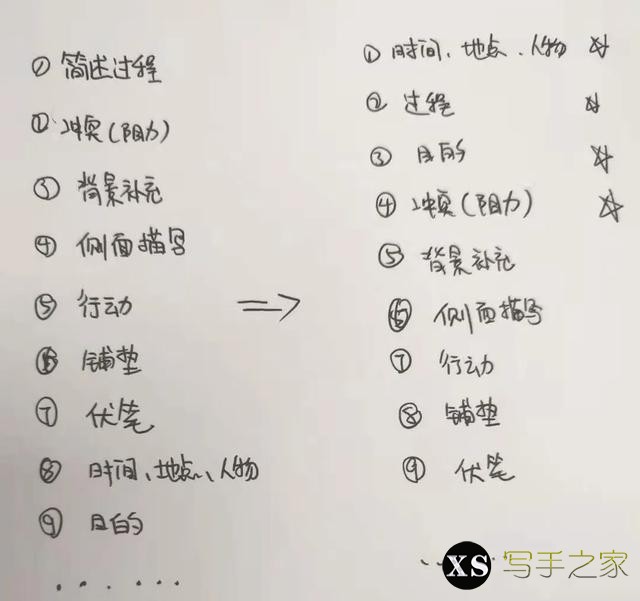 ① 简述过程
② 冲突(阻力)
③ 背景补充
④ 侧面描写
⑤ 行动
⑥ 铺垫
⑦ 伏笔
⑧ 时间、地点、人物
⑨ 目的
……
⇒
① 时间、地点、人物 ☆
② 过程 ☆
③ 目的 ☆
④ 冲突(阻力) ☆
⑤ 背景补充
⑥ 侧面描写
⑦ 行动
⑧ 铺垫
⑨ 伏笔
XS 写手之家